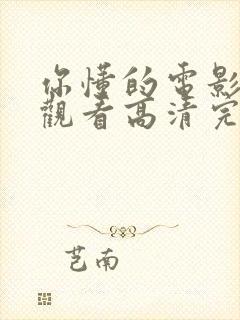 你懂的电影
觀看高清完
芑南